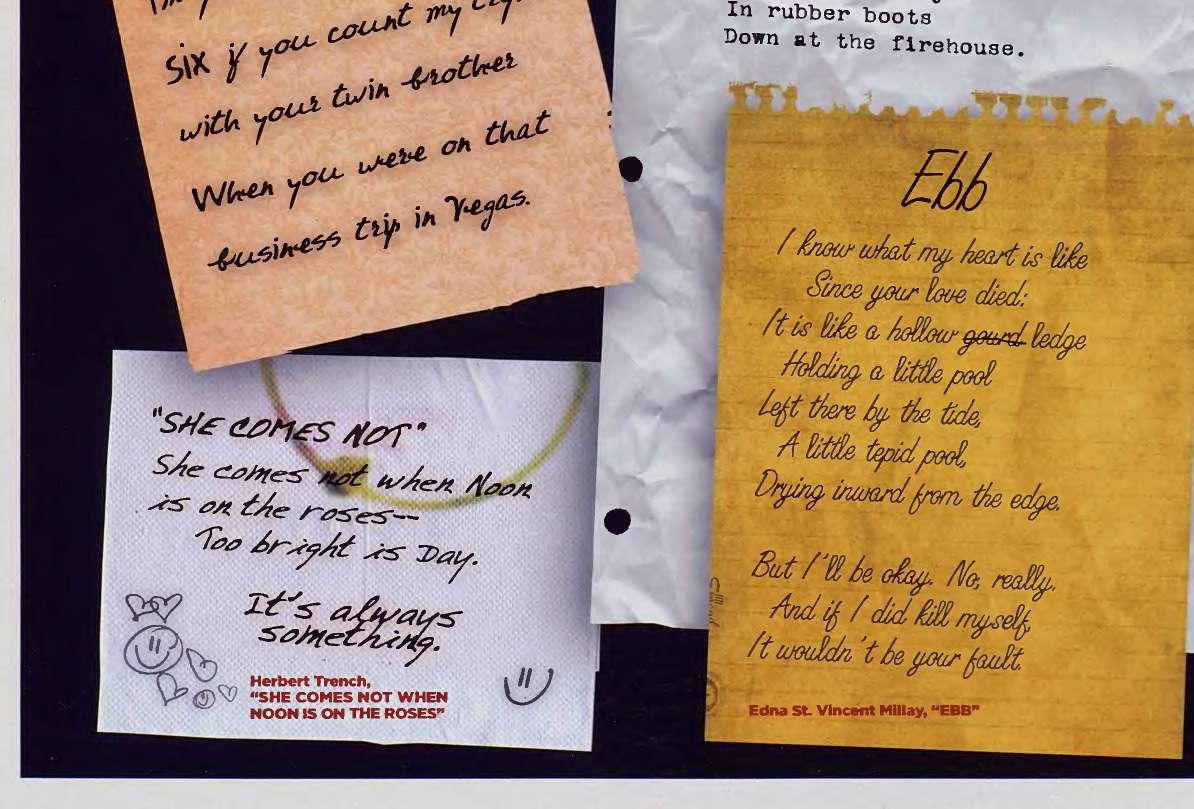 six if you count my
with your twin brother
When you were on that
business trip in Vegas.
In rubber boots
Down at the firehouse.
"SHE COMES NOT"
She comes not when Noon
is on the roses—
Too bright is Day.
It's always
something.
Herbert Trench,
"SHE COMES NOT WHEN
NOON IS ON THE ROSES"
Ebb
I know what my heart is like
Since your love died:
It is like a hollow gourd ledge
Holding a little pool
Left there by the tide,
A little tepid pool,
Drying inward from the edge.
But I'll be okay. No, really.
And if I did kill myself,
It wouldn't be your fault.
Edna St. Vincent Millay, "EBB"